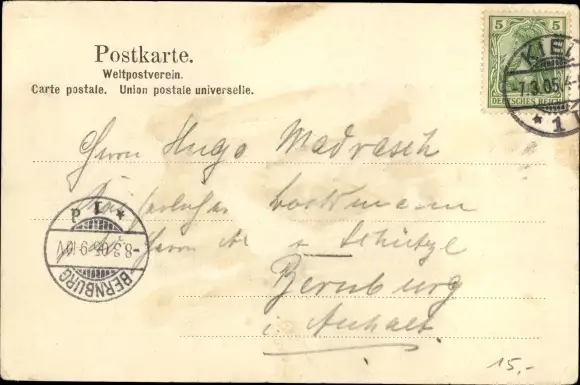 Postkarte.
Weltpostverein.
Carte postale. Union postale universelle.
5 5
DEUTSCHES REICH
KIEL
-7.3.05.4-
* 1
Herrn Hugo Madrasch
Bockmann
Herrn A. + Schütze
Bernburg
i. Anhalt
BERNBURG
-8.3.05.9-10V
* 1 d
15,-